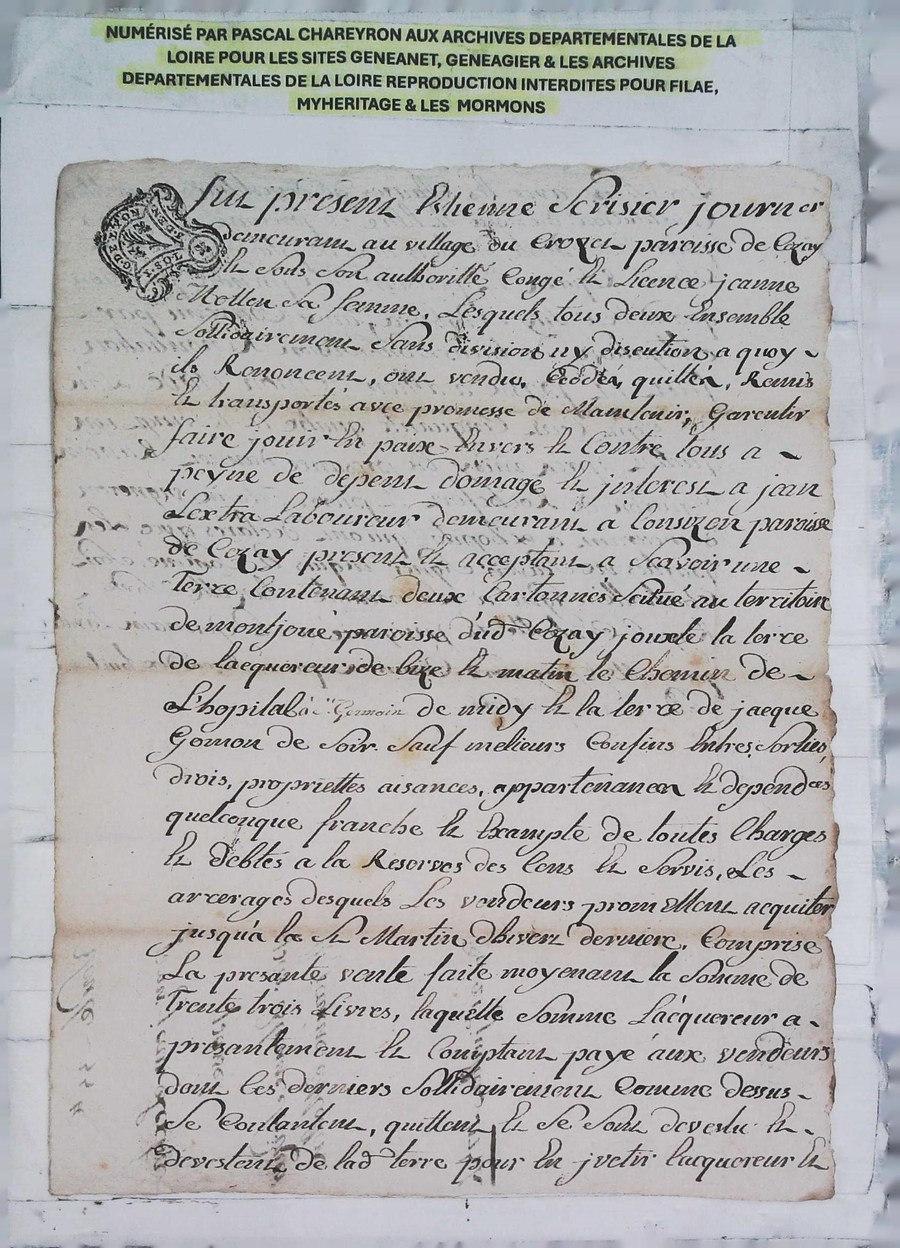 NUMÉRISÉ PAR PASCAL CHAREYRON AUX ARCHIVES DEPARTEMENTALES DE LA
LOIRE POUR LES SITES GENEANET, GENEAGIER & LES ARCHIVES
DEPARTEMENTALES DE LA LOIRE REPRODUCTION INTERDITES POUR FILAE,
MYHERITAGE & LES MORMONS
fut présent Etienne journer
Demeurant au village du Crozet paroisse de Cezay
Et Sous Son authoritté Congé Et Licence jeanne
Sa femme, Lesquels tous deux Ensemble
Sollidairement Sans division ny discution a quoy -
ils Renoncent, ont vendus, Ceddés, quittés, Remis
Et transportés avec promesse de Maintenir, Garentir
faire jouir En paix Envers Et Contre tous a -
peyne de depent domage Et jnterest a jean
Lextra Laboureur demeurant a paroisse
de Cezay present Et acceptant a Scavoir une -
Terre Contenant deux Cartonnes Scitue au territoire
de montjoue paroisse dud Cezay jouxte la terre
de lacquereur de bize Et matin le Chemin de -
L'hopital à St Germain de midy Et la terre de jacque
Gomon de Soir Sauf melieurs Confins Entres, Sorties,
drois, propriettes aisances, appartenances Et dependces
quelconque franche Et Exampte de toutes Charges
Et debtes a la Reserves des Cens Et Servis, Les -
arrerages desquels Les vendeurs promettent acquiter
jusqu'a la St Martin dhivert derniere, Comprise
La presante vente faite moyenant la Somme de
Trente trois Livres, laquelle Somme Lacquereur a -
presantement Et Comptant payé aux vendeurs
dont Ces derniers Sollidairement Comme dessus -
Se Contantent, quittent Et Se Sont devestu Et -
devestent de lad terre pour En jvetir lacquereur Et